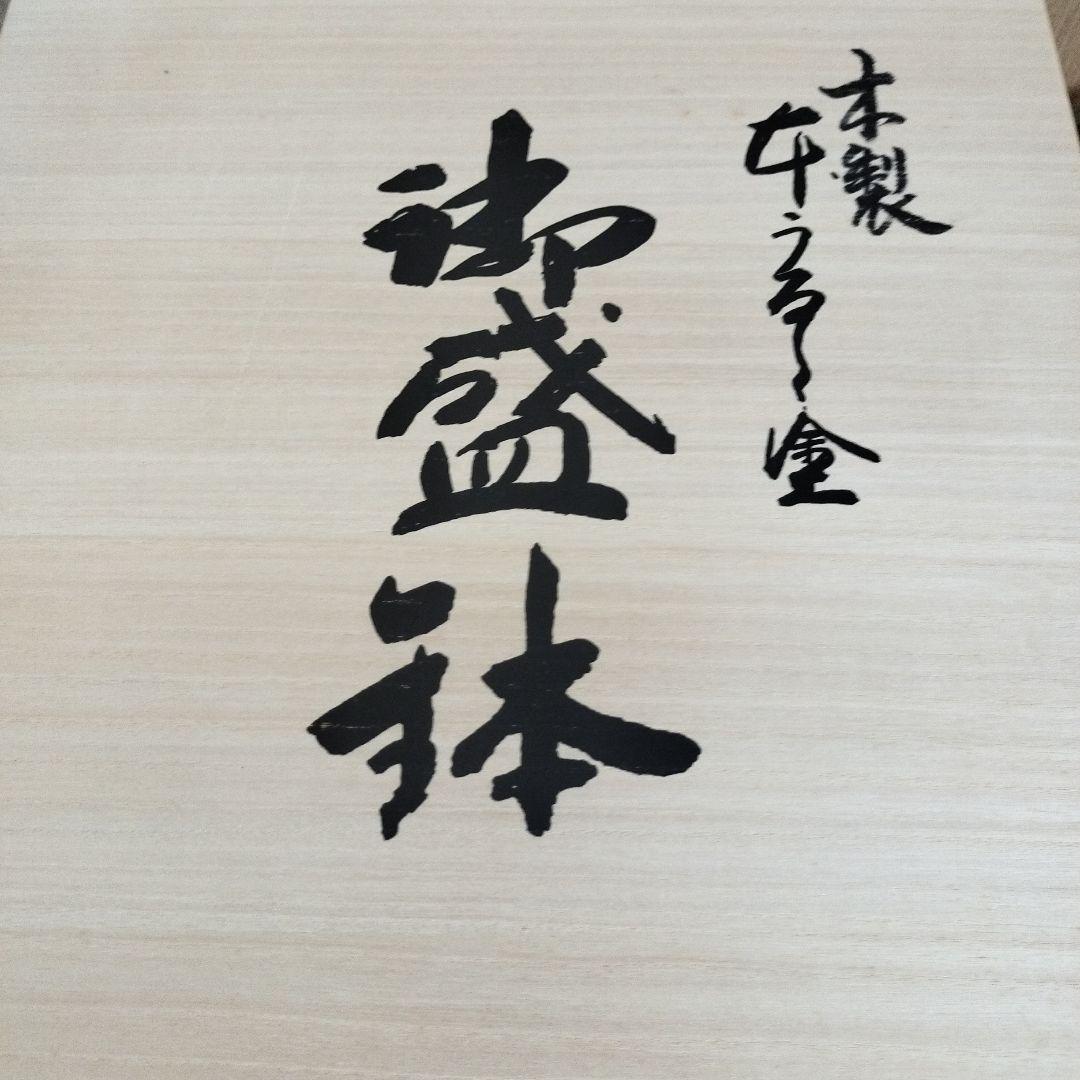 木製
本うるし塗
御盛鉢